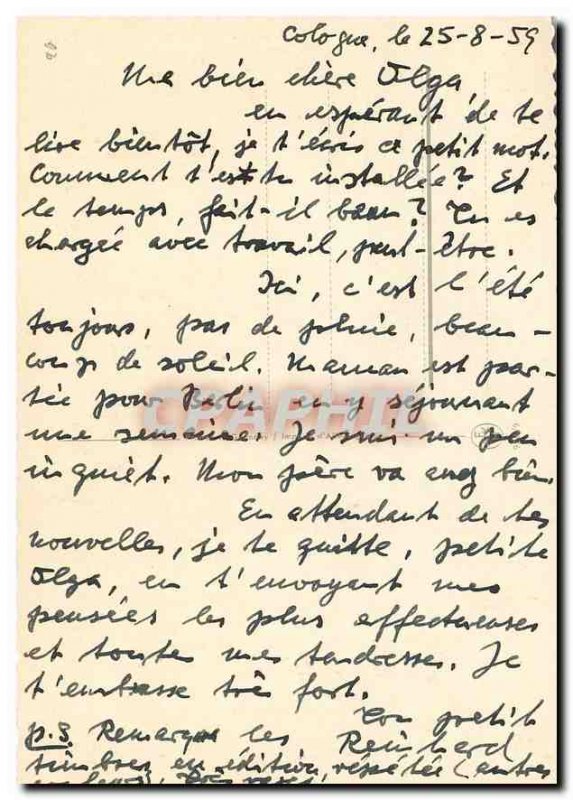 Cologne, le 25-8-59
Ma bien chère Olga,
en espérant de te
lire bientôt, je t'écris ce petit mot.
Comment t'es tu installée? Et
le temps, fait-il beau? Tu es
chargée avec travail, peut-être.
Ici, c'est l'été
toujours, pas de pluie, beau-
coup de soleil. Maman est par-
tie pour Berlin en y séjournant
une semaine. Je suis un peu
inquiet. Mon père va assez bien.
En attendant de tes
nouvelles, je te quitte, petite
Olga, en t'envoyant mes
pensées les plus affectueuses
et toutes mes tendresses. Je
t'embrasse très fort.
Ton petit
Reinhard
p.S Remarque les
timbres en édition répétée (autres
CPAPHIL